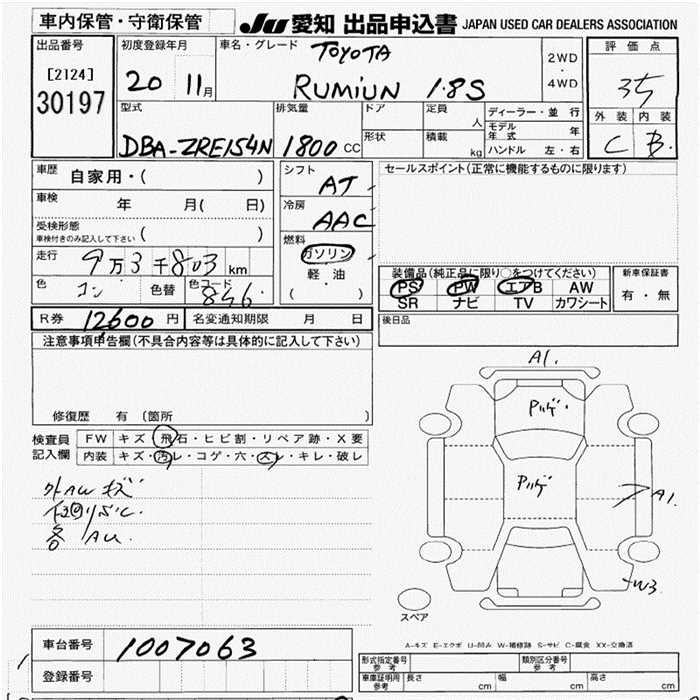 車内保管・守衛保管
JU 愛知 出品申込書 JAPAN USED CAR DEALERS ASSOCIATION
出品番号
[2124]
30197
初度登録年月
20 11月
車名・グレード
TOYOTA
RUMIUN 1.8S
2WD
・
4WD
評価点
外装 内装
C B
型式
DBA-ZRE154N
排気量
1800 CC
ドア
形状
定員
人
積載
kg
ディーラー・並行
モデル年式 年
ハンドル 左・右
車歴
自家用・( )
車検
年 月( 日)
受検形態
車検付きのみ記入して下さい ( )
走行
9万3千803km
色
コン
色替
色コード
846
シフト
AT
冷房
AAC
燃料
ガソリン
軽・油
( )
セールスポイント(正常に機能するものに限ります)
装備品(純正品に限り○をつけてください)
PS PW エアB AW
SR ナビ TV カワシート
新車保証書
有・無
R券 12600円
名変通知期限 月 日
後日品
注意事項申告欄(不具合内容等は具体的に記入して下さい)
修復歴 有 (箇所
検査員記入欄
FW キズ・飛石・ヒビ割・リペア跡・X要
内装 キズ・汚レ・コゲ・穴・スレ・キレ・破レ
外AWキズ
各 AU.
A1.
A1.
W3
スペア
A-キズ E-エクボ U-凹み W-補修跡 S-サビ C-腐食 XX-交換済
車台番号
1007063
登録番号
型式指定番号
参考
類別区分番号
参考
車庫証明用
参考
長さ cm
幅 cm
高さ cm